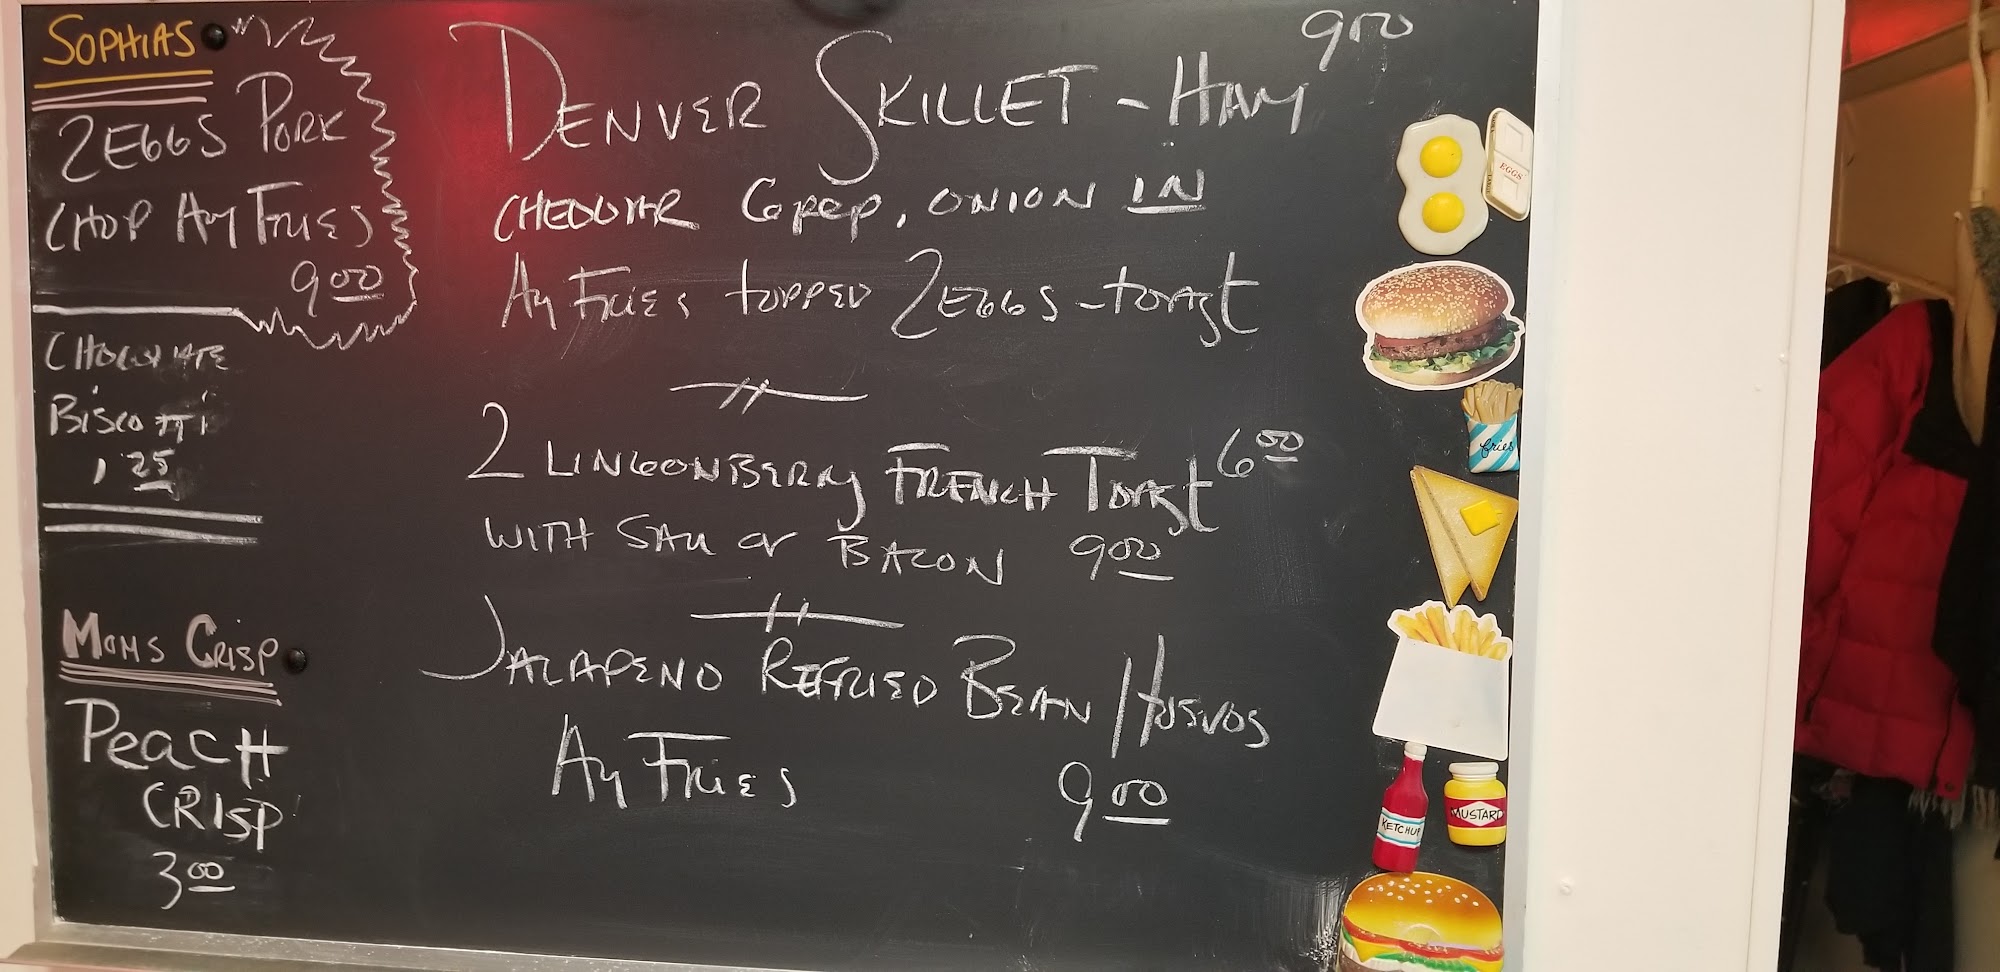 SOPHIAS
2 EGGS PORK
CHOP AM FRIES
9 00
CHOCOLATE
BISCOTTI
1 25
MOMS CRISP
PEACH
CRISP
3 00
DENVER SKILLET - HAM 9 00
CHEDDAR G PEP, ONION IN
AM FRIES TOPPED 2 EGGS - TOAST
2 LINGONBERRY FRENCH TOAST 6 00
WITH SAU OR BACON 9 00
JALAPENO REFRIED BEAN HUEVOS
AM FRIES 9 00
EGGS
fries
KETCHUP
MUSTARD